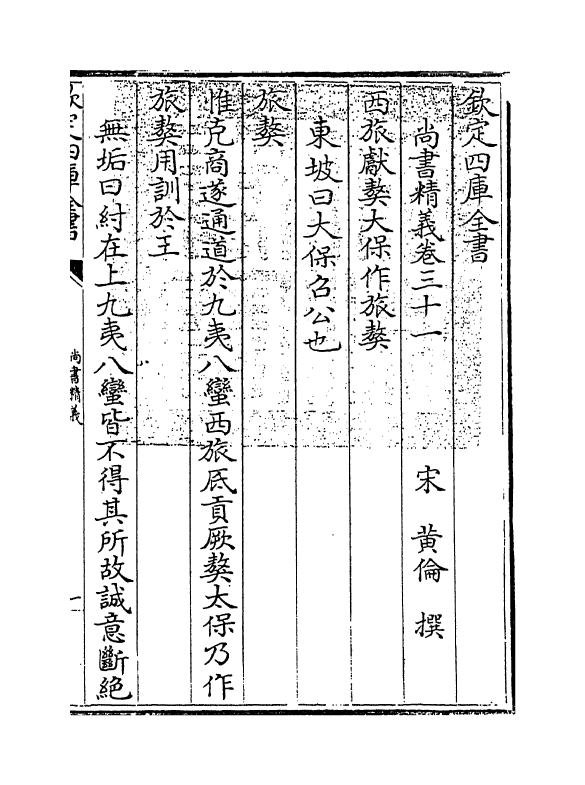 欽定四庫全書
尚書精義卷三十一　宋　黄倫　撰
西旅獻獒大保作旅獒
東坡曰大保召公也
旅獒
惟克商遂通道於九夷八蠻西旅厎貢厥獒太保乃作
旅獒用訓於王
無垢曰紂在上九夷八蠻皆不得其所故誠意斷絶
欽定四庫全書
尚書精義
一